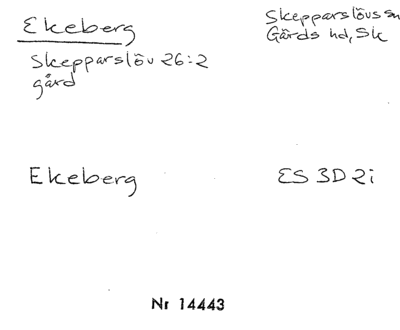 Ekeberg
Skepparslövs sn
Gärds hd, Sk
Skepparslöv 26:2
gård
Ekeberg
ES 3D 2i
Nr 14443